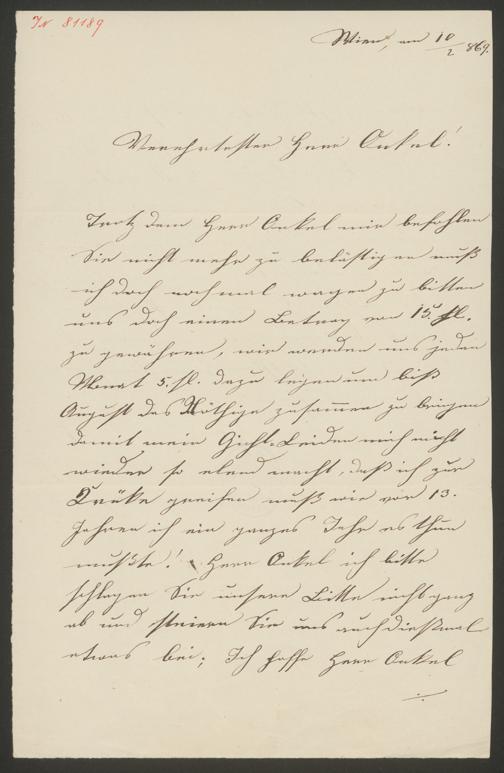 IN 81189
Wien, am 10/2 869.
Verehrtester Herr Onkel!
Trotz dem Herr Onkel mir befohlen
Sie nicht mehr zu belästigen muß
ich doch noch mal wagen zu bitten
uns doch einen Betrag von 15. fl.
zu gewähren, wir werden uns jeden
Monat 5. fl. dazu legen um biß
August das Nöthige zusammen zu bringen
damit mein Gicht-Leiden mich nicht
wieder so elend macht, daß ich zur
Krüke greifen muß wie vor 13.
Jahren ich ein ganzes Jahr es thun
mußte! Herr Onkel ich bitte
schlagen Sie unsere Bitte nicht ganz
ab und steiern Sie uns auch dießmal
etwas bei; Ich hoffe Herr Onkel